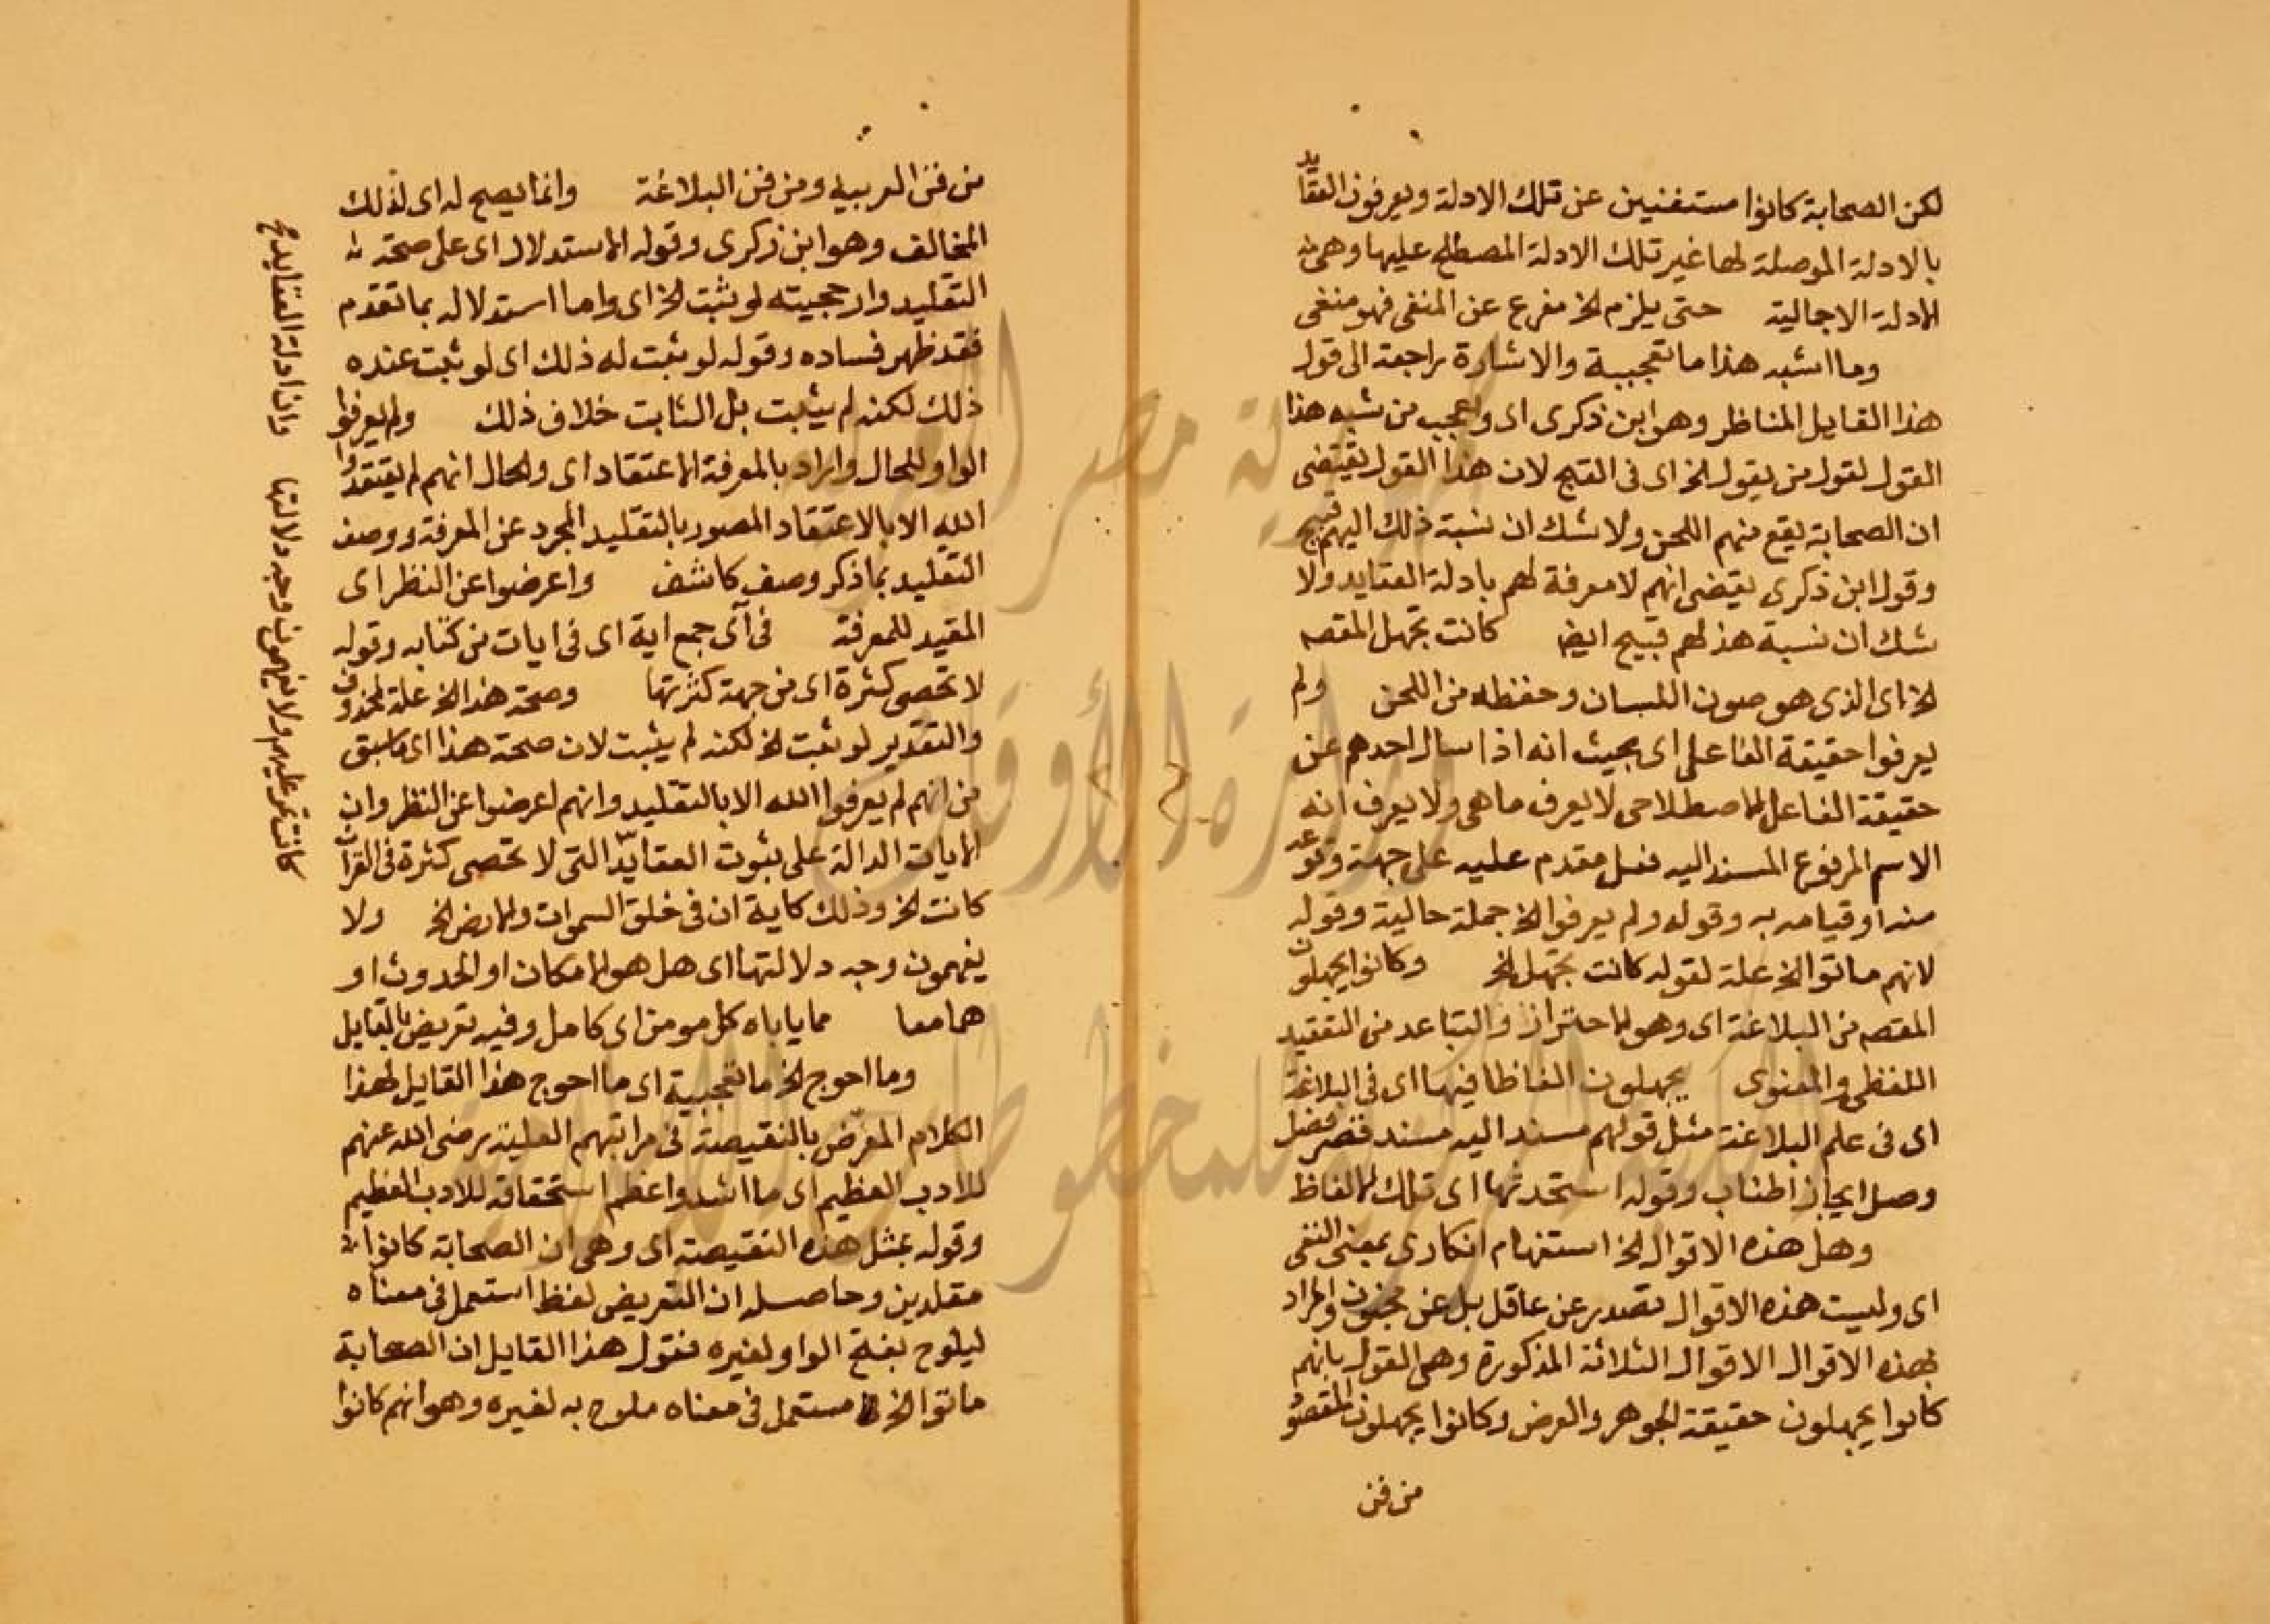 لكن الصحابة كانوا مستغنين عن تلك الادلة ويعرفون العقايد
بالادلة الموصلة لها غير تلك الادلة المصطلح عليها وهى
الادلة الاجمالية حتى يلزم الخ مفرع عن المنفى فهو منفى
وما اشبه هذا ما تعجيبية والاشارة راجعة الى قول
هذا القايل المناظر وهو ابن ذكرى اى واعجب من شبه هذا
القول لقول من يقول الخ اى فى القبح لان هذا القول يقتضى
ان الصحابة يقع منهم اللحن ولا شك ان نسبة ذلك اليهم قبيح
وقول ابن ذكرى يقتضى انهم لا معرفة لهم بادلة العقايد ولا
شك ان نسبة هذا لهم قبيح ايضا كانت تجهل المقصد
الخ اى الذى هو صون اللسان وحفظه من اللحن ولم
يعرفوا حقيقة الفاعل اى بحيث انه اذا سال احدهم عن
حقيقة الفاعل الاصطلاحى لا يعرف ما هى ولا يعرف انه
الاسم المرفوع المسند اليه فعل مقدم عليه على جهة وقوعه
منه او قيامه به وقوله ولم يعرفوا الخ جملة حالية وقوله
لانهم ماتوا الخ علة لقوله كانت تجهل الخ وكانوا يجهلون
المقصد من البلاغة اى وهو الاحتراز والتباعد من التعقيد
اللفظى والمعنوى يجهلون الفاظا فيها اى فى البلاغة
اى فى علم البلاغة مثل قولهم مسند اليه مسند قصر فصل
وصل ايجاز اطناب وقوله استحدثها اى تلك الالفاظ
وهل هذه الاقوال الخ استفهام انكارى بمعنى النفى
اى وليست هذه الاقوال تصدر عن عاقل بل عن مجنون والمراد
بهذه الاقوال الاقوال الثلاثة المذكورة وهى القول بانهم
كانوا يجهلون حقيقة الجوهر والعرض وكانوا يجهلون المقصود
من فن
من فن العربية ومن فن البلاغة وانما يصح له اى لذلك
المخالف وهو ابن ذكرى وقوله الاستدلال اى على صحة
التقليد وارجحيته لو ثبت الخ اى واما استدلاله بما تقدم
فقد ظهر فساده وقوله لو ثبت له ذلك اى لو ثبت عنده
ذلك لكنه لم يثبت بل الثابت خلاف ذلك ولم يعرفوا
الواو للحال واراد بالمعرفة الاعتقاد اى والحال انهم لم يعتقدوا
الله الا بالاعتقاد المصور بالتقليد المجرد عن المعرفة ووصف
التقليد بما ذكر وصف كاشف واعرضوا عن النظر اى
المفيد للمعرفة فى آى جمع اية اى فى ايات من كتابه وقوله
لا تحصى كثرة اى من جهة كثرتها وصحة هذا الخ علة لمحذوف
والتقدير لو ثبت الخ لكنه لم يثبت لان صحة هذا اى ما سبق
من انهم لم يعرفوا الله الا بالتقليد وانهم اعرضوا عن النظر وان
الايات الدالة على ثبوت العقايد التى لا تحصى كثرة فى القرآن
كانت الخ وذلك كاية ان فى خلق السموات والارض الخ ولا
يفهمون وجه دلالتها اى هل هو الامكان او الحدوث او
هما معا مما ياباه كل مومن اى كامل وفيه تعريض بالقايل
وما احوج الخ ما تعجبية اى ما احوج هذا القايل لهذا
الكلام المعرّض بالنقيصة فى مراتبهم العلية رضى الله عنهم
للادب العظيم اى ما اشد واعظم استحقاقه للادب العظيم
وقوله بمثل هذه النقيصة اى وهى ان الصحابة كانوا
مقلدين وحاصله ان التعريض لفظ استعمل فى معناه
ليلوح بفتح الواو لغيره فنقول هذا القايل ان الصحابة
ماتوا الخ مستعمل فى معناه ملوح به لغيره وهو انهم كانوا
وان ادلة العقايد
كانت تمر عليهم ولا يفهمون وجه دلالتها